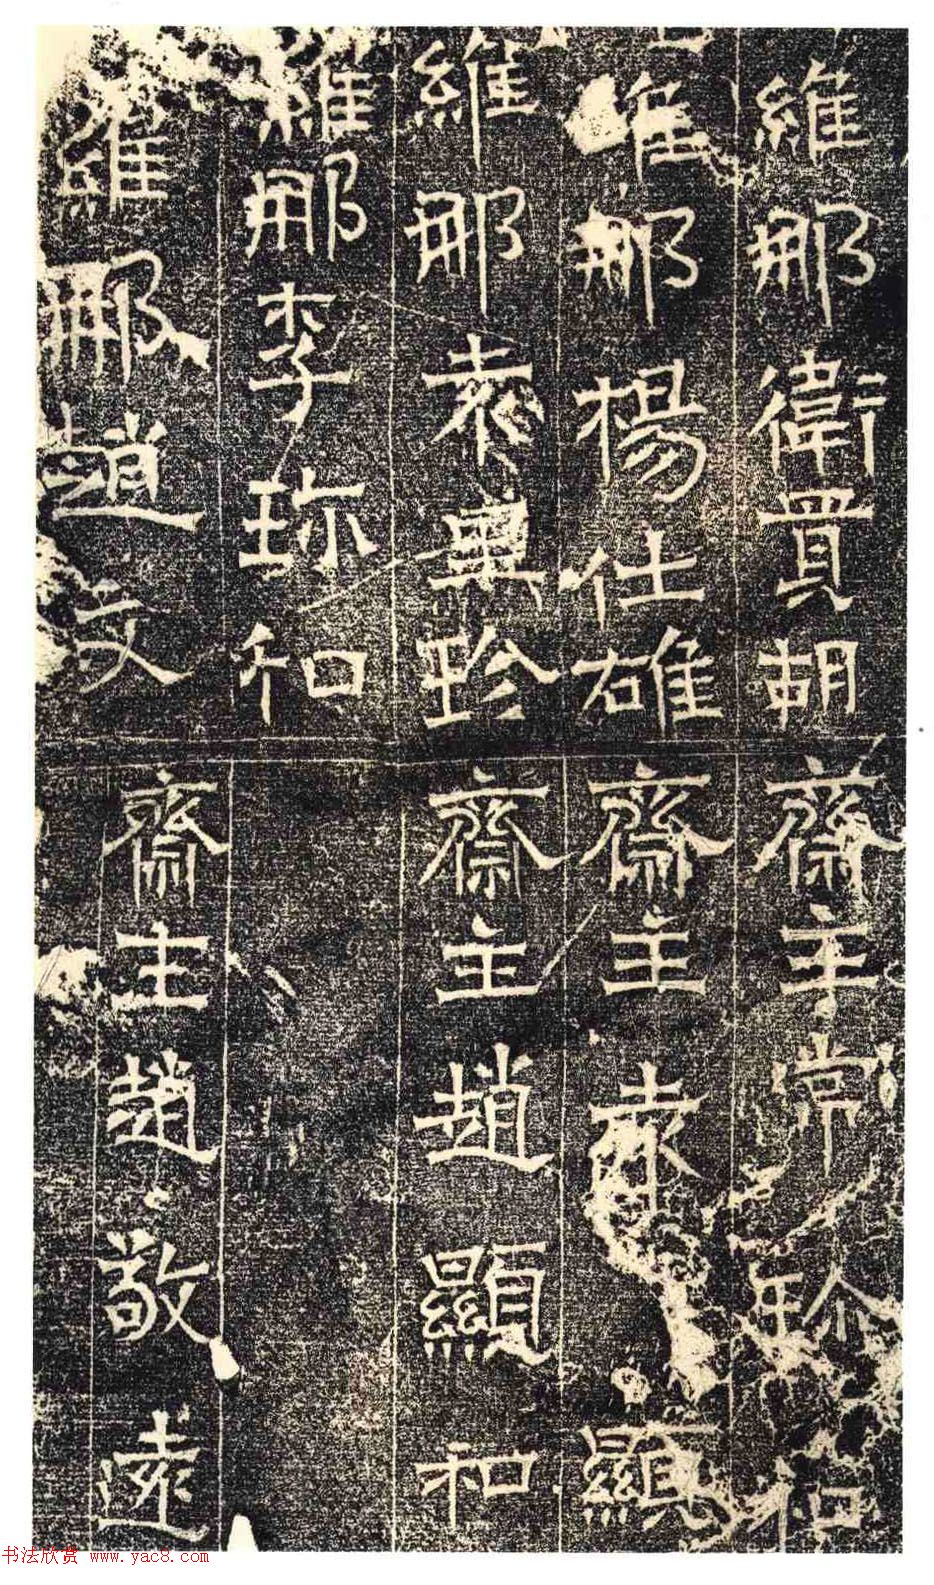 維那衛貫胡
維那楊仕雄
維那袁興珍
維那李珎和
維那趙文
齋主常
齋主袁 顯
齋主趙顯和
齋主趙敬遠
书法欣赏 www.yac8.com